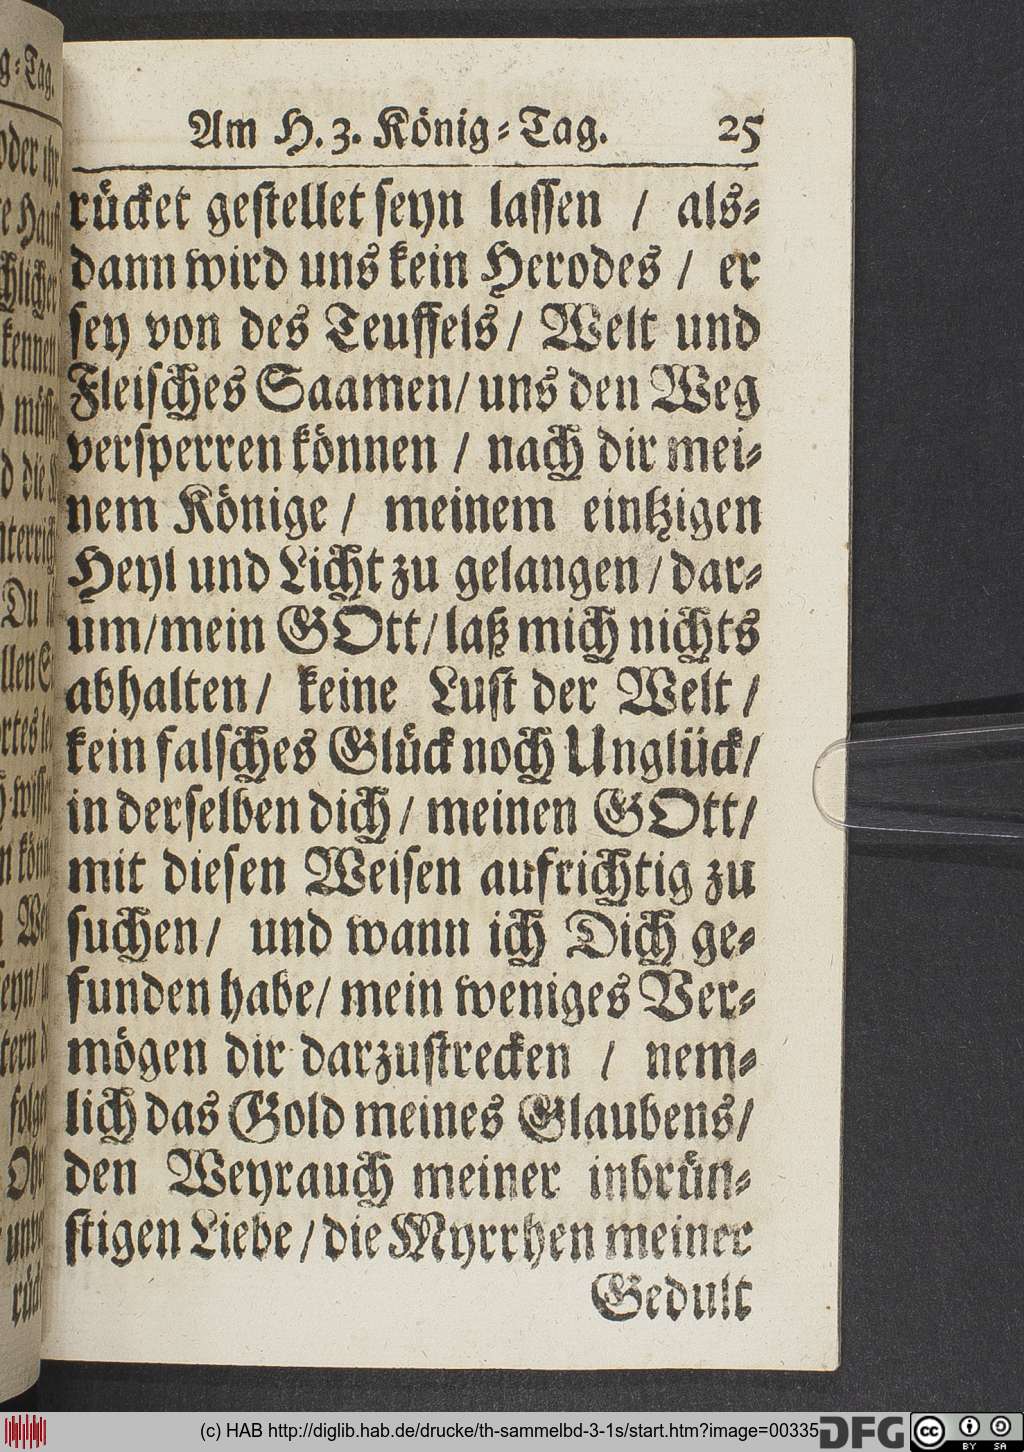 Am H. 3. König-Tag. 25
rücket gestellet seyn lassen / als-
dann wird uns kein Herodes / er
sey von des Teuffels / Welt und
Fleisches Saamen / uns den Weg
versperren können / nach dir mei-
nem Könige / meinem eintzigen
Heyl und Licht zu gelangen / dar-
um / mein GOtt / laß mich nichts
abhalten / keine Lust der Welt /
kein falsches Glück noch Unglück /
in derselben dich / meinen GOtt /
mit diesen Weisen aufrichtig zu
suchen / und wann ich Dich ge-
funden habe / mein weniges Ver-
mögen dir darzustrecken / nem-
lich das Gold meines Glaubens /
den Weyrauch meiner inbrün-
stigen Liebe / die Myrrhen meiner
Gedult
(c) HAB http://diglib.hab.de/drucke/th-sammelbd-3-1s/start.htm?image=00335
DFG
cc BY SA